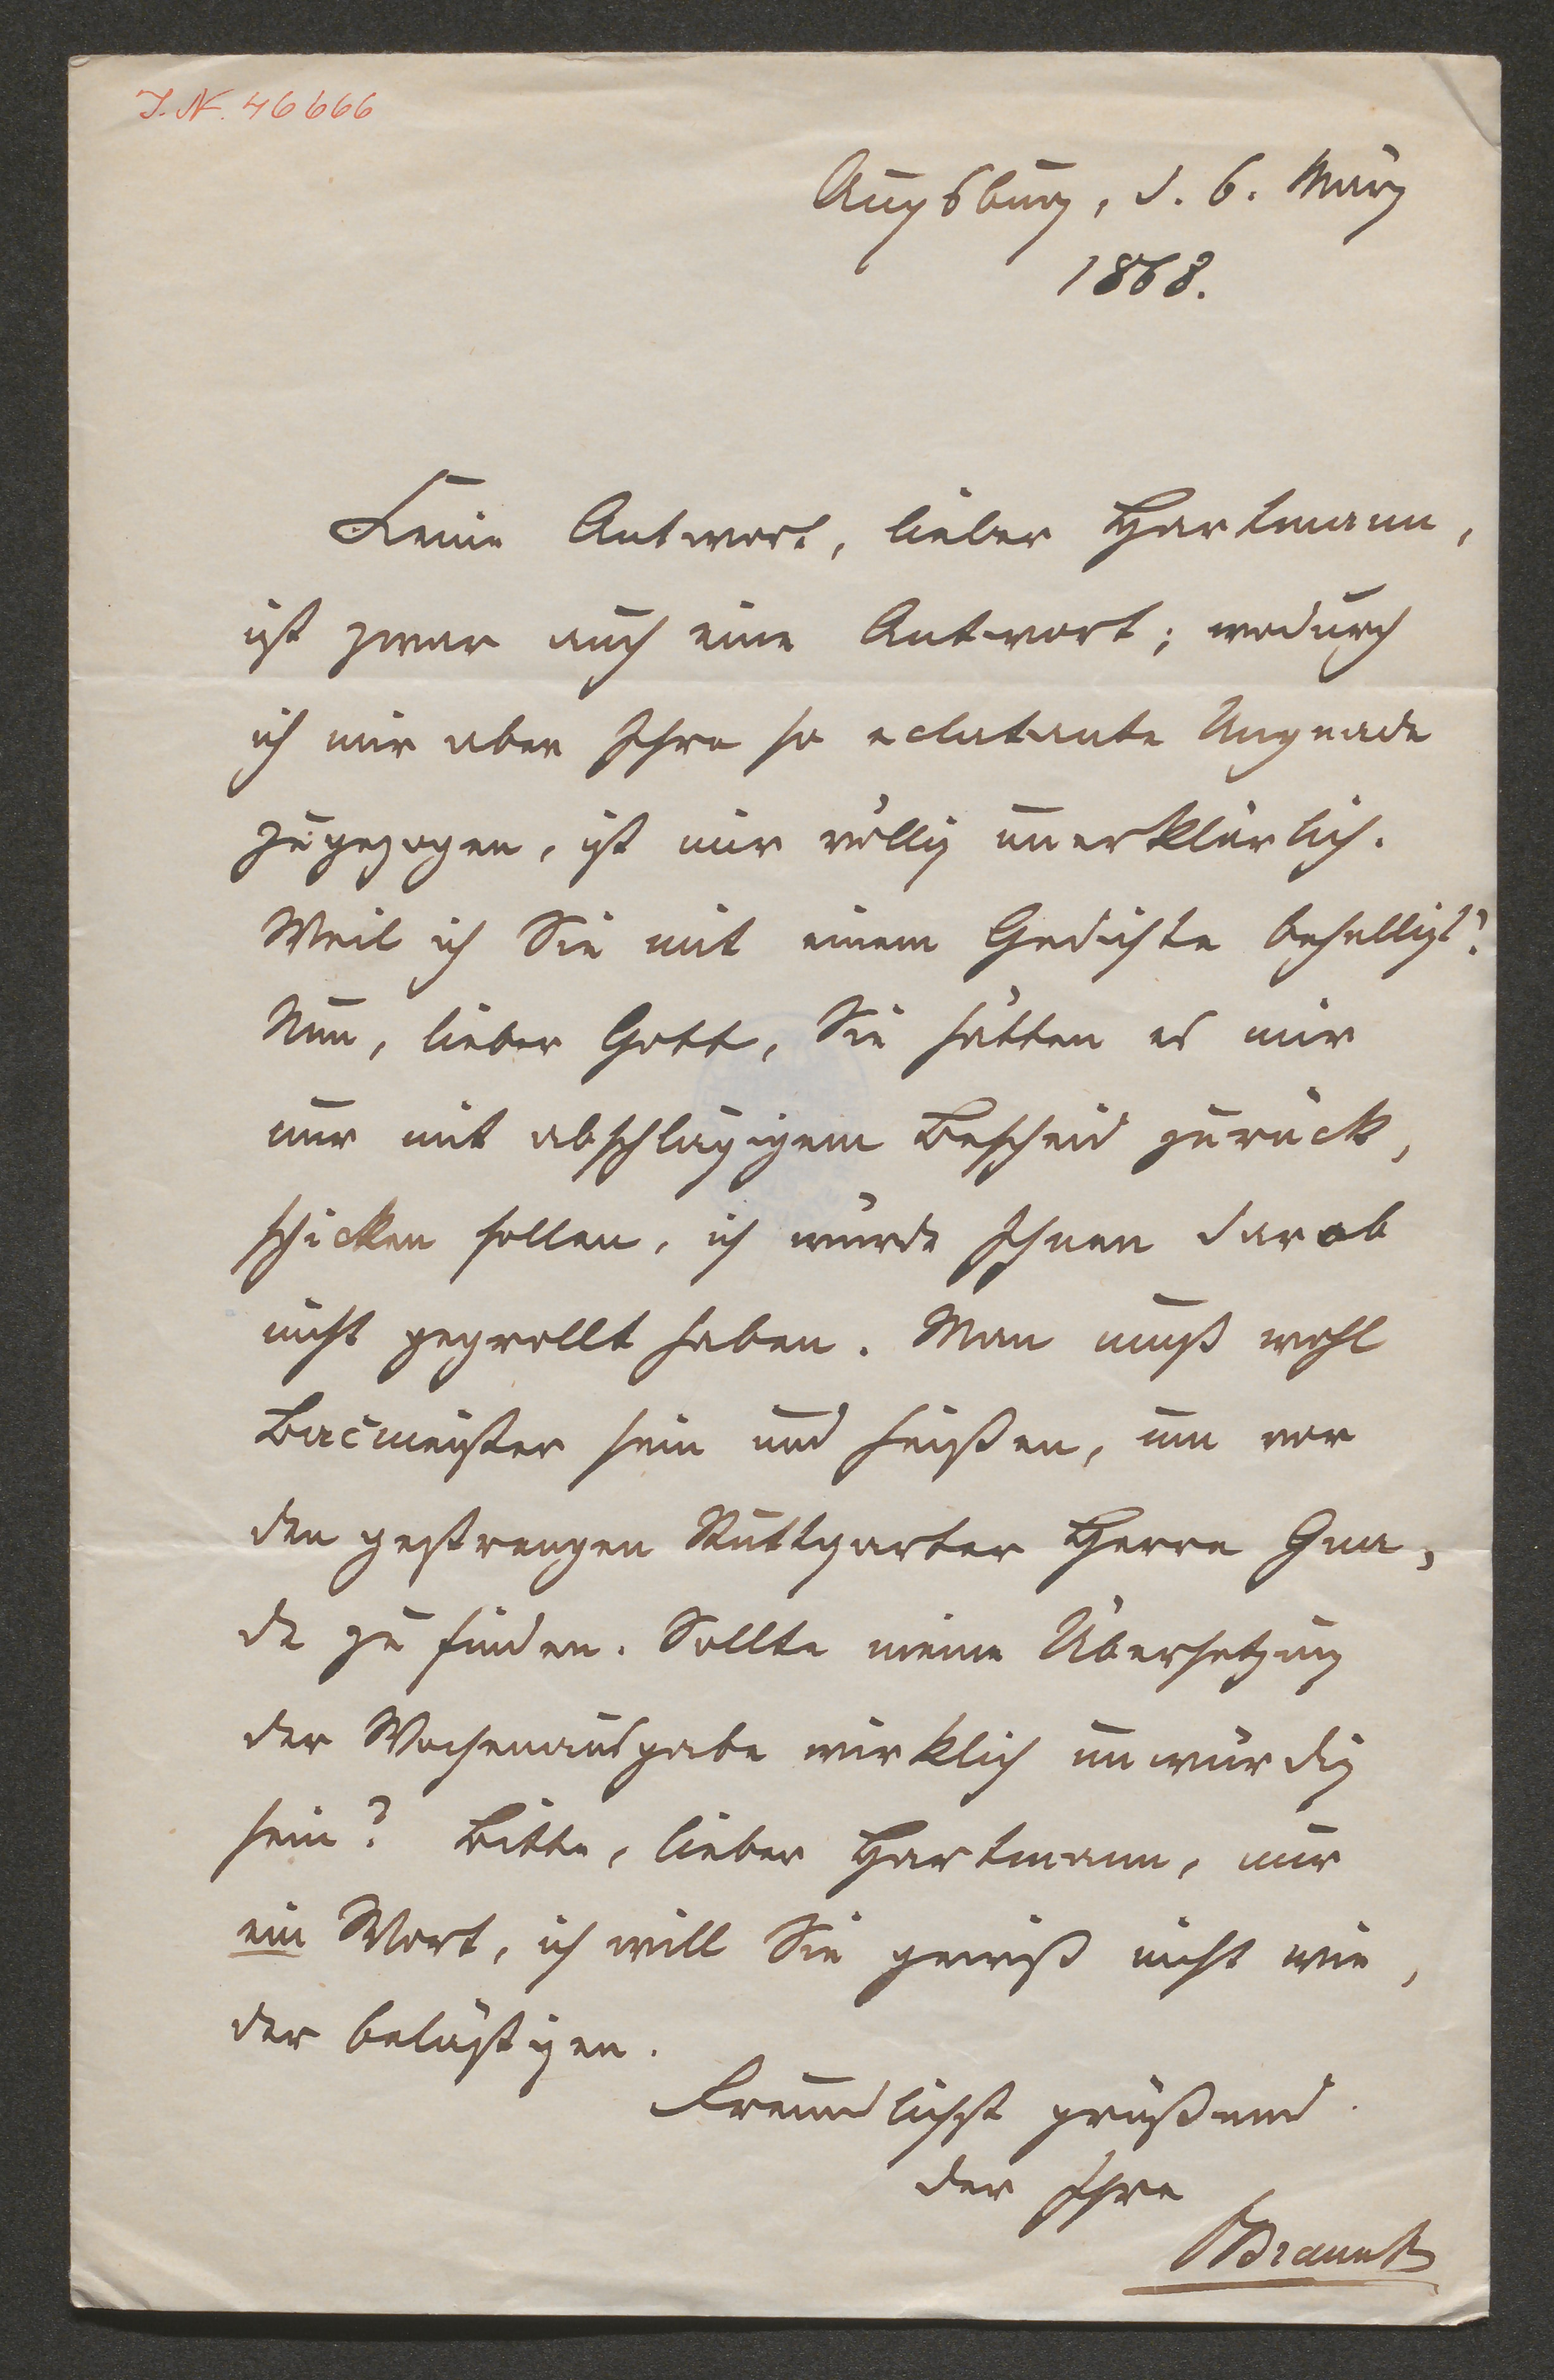 I. N. 46666
Augsburg, d. 6. März
1868.
Keine Antwort, lieber Hartmann,
ist zwar auch eine Antwort; wodurch
ich mir aber Ihre so eclatante Ungnade
zugezogen, ist mir völlig unerklärlich.
Weil ich Sie mit einem Gedichte behelligt?
Nun, lieber Gott, Sie hätten es mir
nur mit abschlägigem Bescheid zurück,
schicken sollen, ich würde Ihnen darob
nicht gegrollt haben. Man muß wohl
Bacmeister sein und heißen, um vor
den gestrengen Stuttgarter Herre Gna,
de zu finden. Sollte meine Übersetzung
der Wochenausgabe wirklich unwürdig
sein? Bitte, lieber Hartmann, nur
ein Wort, ich will Sie gewiß nicht wie,
der belästigen.
Freundlichst grüßend
der Ihre